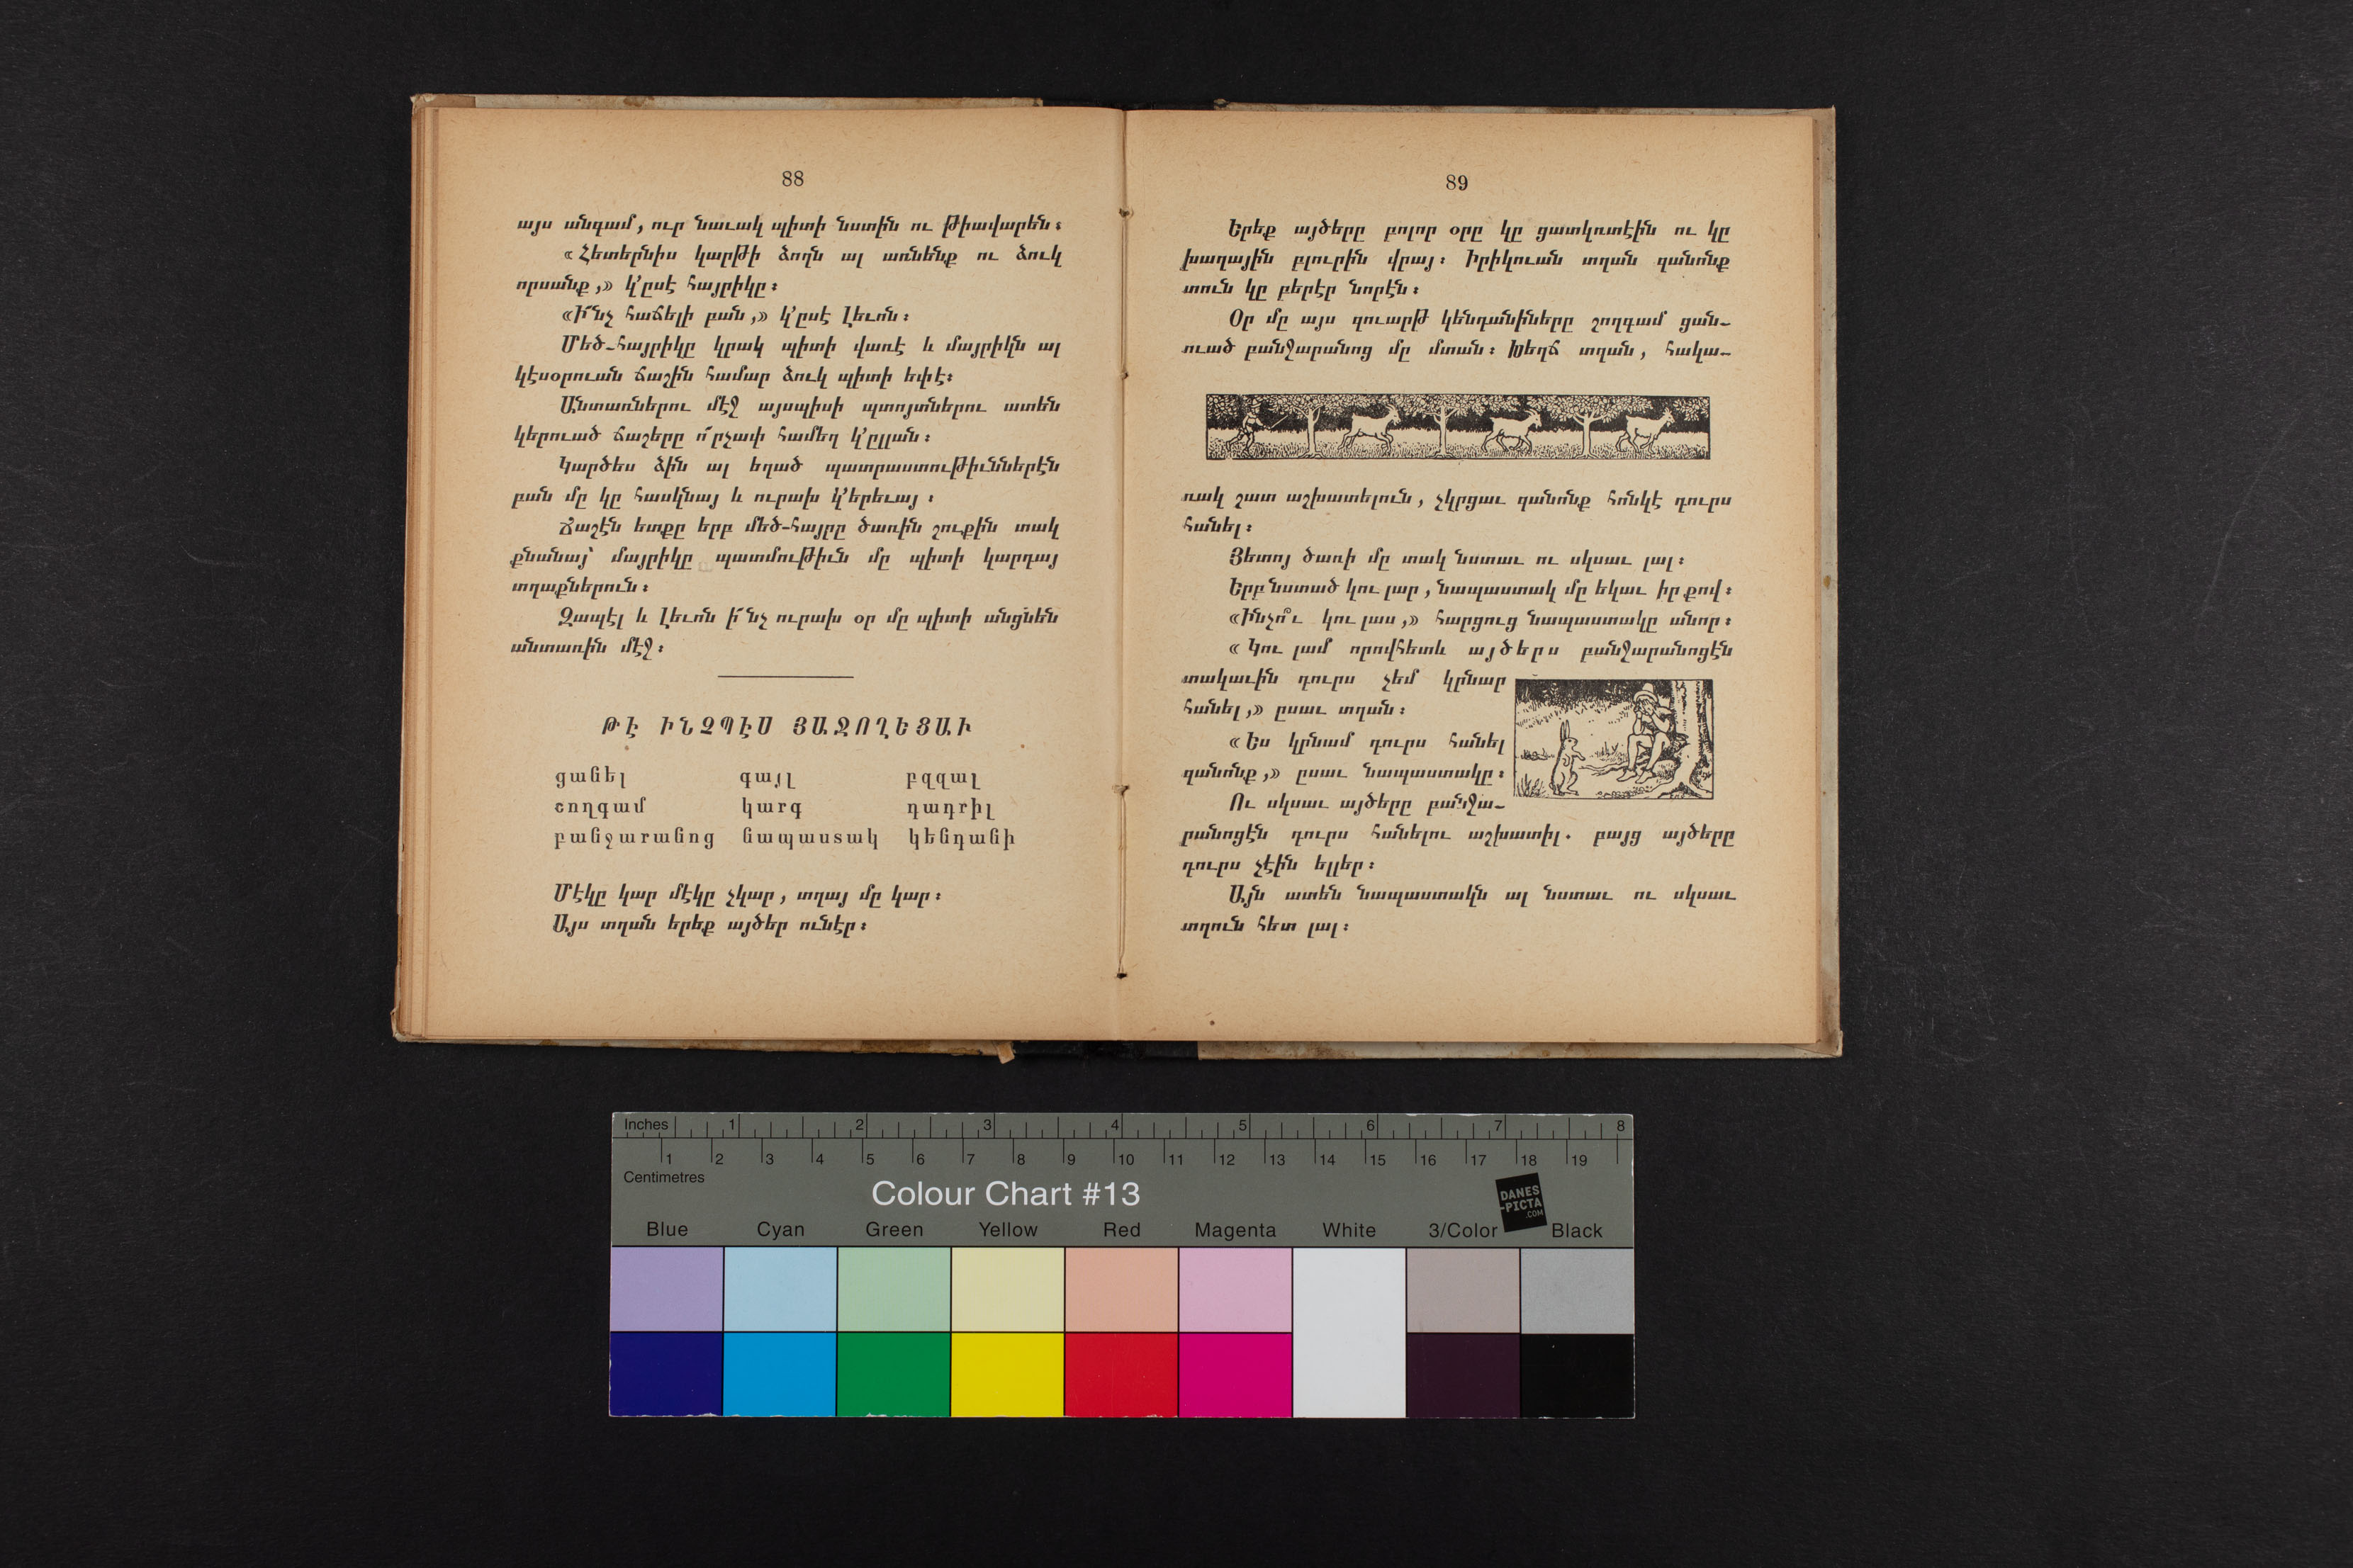 88
այս անգամ, ուր նաւակ պիտի նստին ու թիավարեն։
«Հետերնիս կարթի ձողն ալ առնենք ու ձուկ
որսանք,» կ՚ըսէ հայրիկը։
«Ի՜նչ հաճելի բան,» կ՚ըսէ Լեւոն։
Մեծ-հայրիկը կրակ պիտի վառէ և մայրիկն ալ
կէսօրուան ճաշին համար ձուկ պիտի եփէ։
Անտառներու մէջ այսպիսի պտոյտներու ատեն
կերուած ճաշերը ո՜րչափ համեղ կ՚ըլլան։
Կարծես ձին ալ եղած պատրաստութիւններէն
բան մը կը հասկնայ և ուրախ կ՚երեւայ։
Ճաշէն ետքը երբ մեծ-հայրը ծառին շուքին տակ
քնանայ՝ մայրիկը պատմութիւն մը պիտի կարդայ
տղաքներուն։
Զապէլ և Լեւոն ի՜նչ ուրախ օր մը պիտի անցնեն
անտառին մէջ։
ԹԷ ԻՆՉՊԷՍ ՅԱՋՈՂԵՑԱՒ
ցանել գայլ բզզալ
շողգամ կարգ դադրիլ
բանջարանոց նապաստակ կենդանի
Մէկը կար մէկը չկար, տղայ մը կար։
Այս տղան երեք այծեր ունէր։
89
Երեք այծերը բոլոր օրը կը ցատկռտէին ու կը
խաղային բլուրին վրայ։ Իրիկուան տղան զանոնք
տուն կը բերէր նորէն։
Օր մը այս զուարթ կենդանիները շողգամ ցան-
ուած բանջարանոց մը մտան։ Խեղճ տղան, հակա-
ռակ շատ աշխատելուն, չկրցաւ զանոնք հոնկէ դուրս
հանել։
Յետոյ ծառի մը տակ նստաւ ու սկսաւ լալ։
Երբ նստած կու լար, նապաստակ մը եկաւ իր քով։
«Ինչո՞ւ կու լաս,» հարցուց նապաստակը անոր։
«Կու լամ որովհետև այծերս բանջարանոցէն
տակաւին դուրս չեմ կրնար
հանել,» ըսաւ տղան։
«Ես կրնամ դուրս հանել
զանոնք,» ըսաւ նապաստակը։
Ու սկսաւ այծերը բանջա-
րանոցէն դուրս հանելու աշխատիլ. բայց այծերը
դուրս չէին ելլեր։
Այն ատեն նապաստակն ալ նստաւ ու սկսաւ
տղուն հետ լալ։
Inches 1 2 3 4 5 6 7 8
1 2 3 4 5 6 7 8 9 10 11 12 13 14 15 16 17 18 19
Centimetres
Colour Chart #13
DANES
-PICTA
.COM
Blue Cyan Green Yellow Red Magenta White 3/Color Black